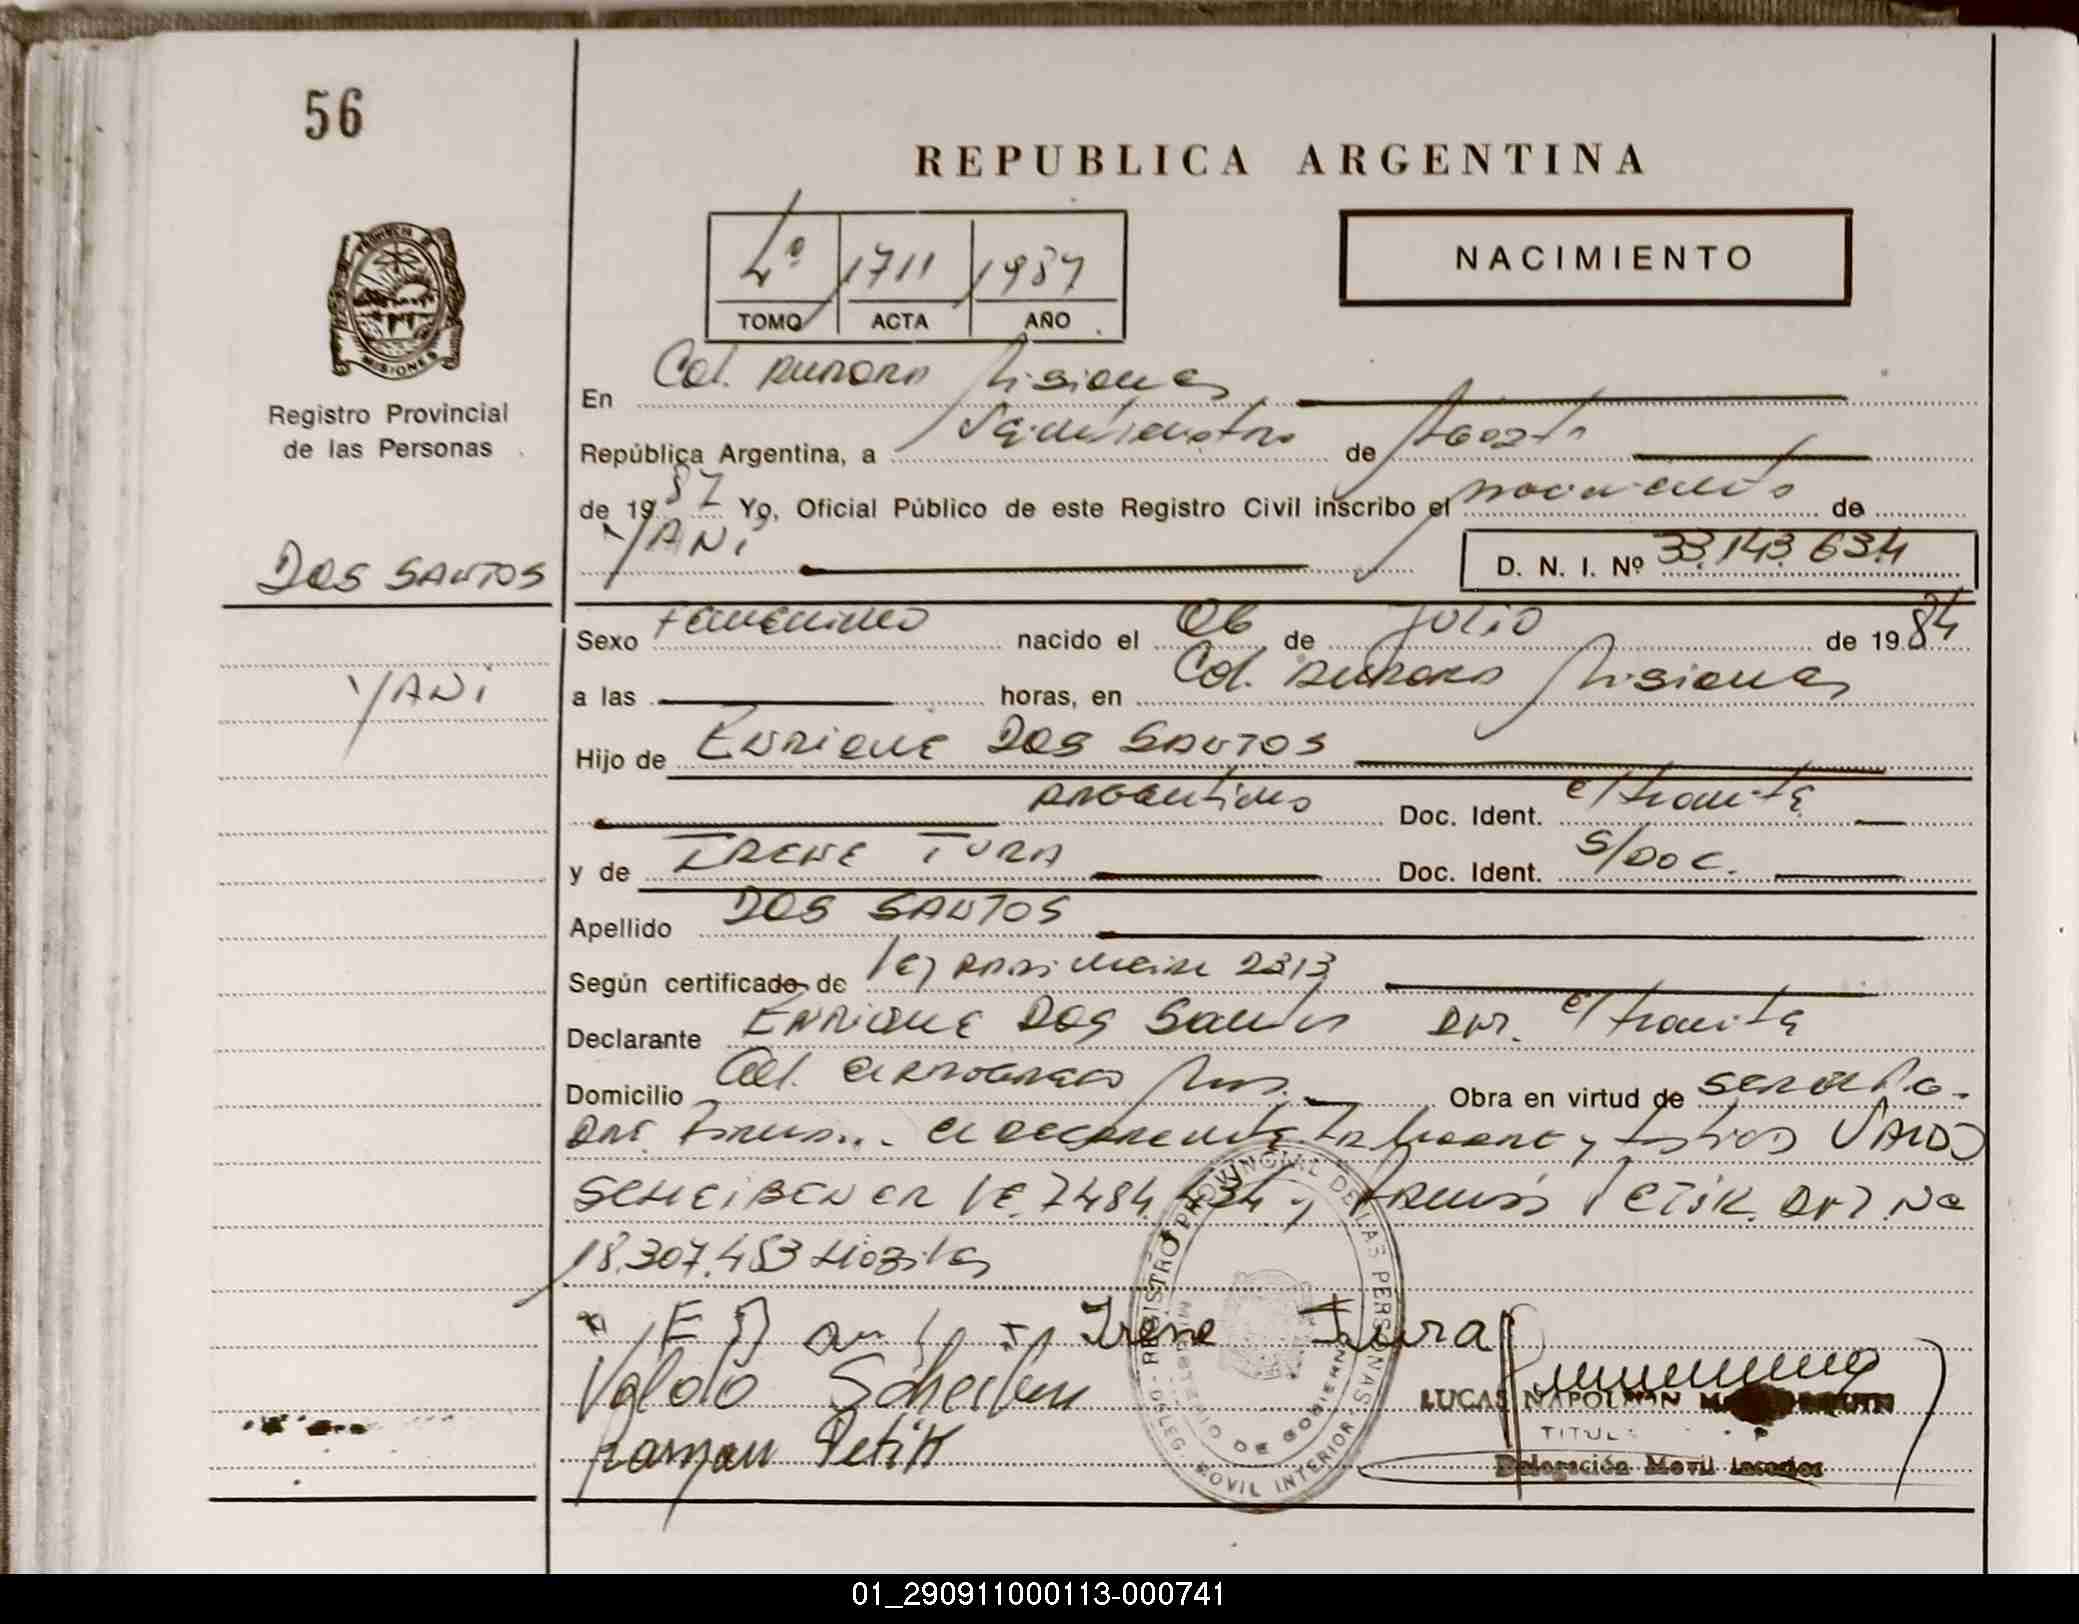 56
REPUBLICA ARGENTINA
NACIMIENTO
4º 1711 1987
TOMO ACTA AÑO
PROVINCIA DE MISIONES
Registro Provincial
de las Personas
En Col. Aurora Misiones
República Argentina, a Veinticuatro de Agosto
de 1987 Yo, Oficial Público de este Registro Civil inscribo el nacimiento de
YANi
D. N. I. Nº 33.143.634
DOS SANTOS
YANi
Sexo Femenino nacido el 06 de Julio de 1984
a las horas, en Col. Aurora Misiones
Hijo de ENRIQUE DOS SANTOS
Argentino Doc. Ident. e/tramite
y de IRENE TURA Doc. Ident. S/DOC.
Apellido DOS SANTOS
Según certificado de Ley 2313
Declarante ENRIQUE DOS Santos DNI. e/tramite
Domicilio Col. Mns. Obra en virtud de ser el Pa-
dre Firman y testigos VALDO
SCHEIBENER LE. 7484.434 y PETIK. DNI. No
18.307.453
Irene Tura
Valdo Scheiben
Raman Petik
REGISTRO PROVINCIAL DE LAS PERSONAS
MINISTERIO DE GOBIERNO
DELEG. MOVIL INTERIOR
LUCAS NAPOLEON
TITULAR
Delegación Movil
01_290911000113-000741